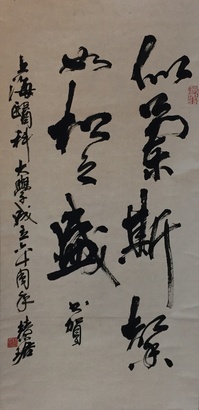 似蘭斯馨
如松之盛 書賀
上海醫科大學成立六十周年 楚琚